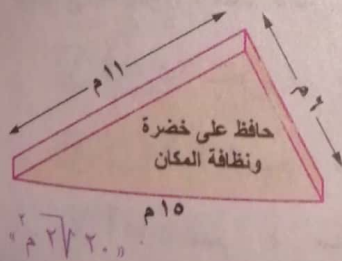 ١١ م
٦ م
حافظ على خضرة
ونظافة المكان
١٥ م
« ٢٠ √٢ م٢ »